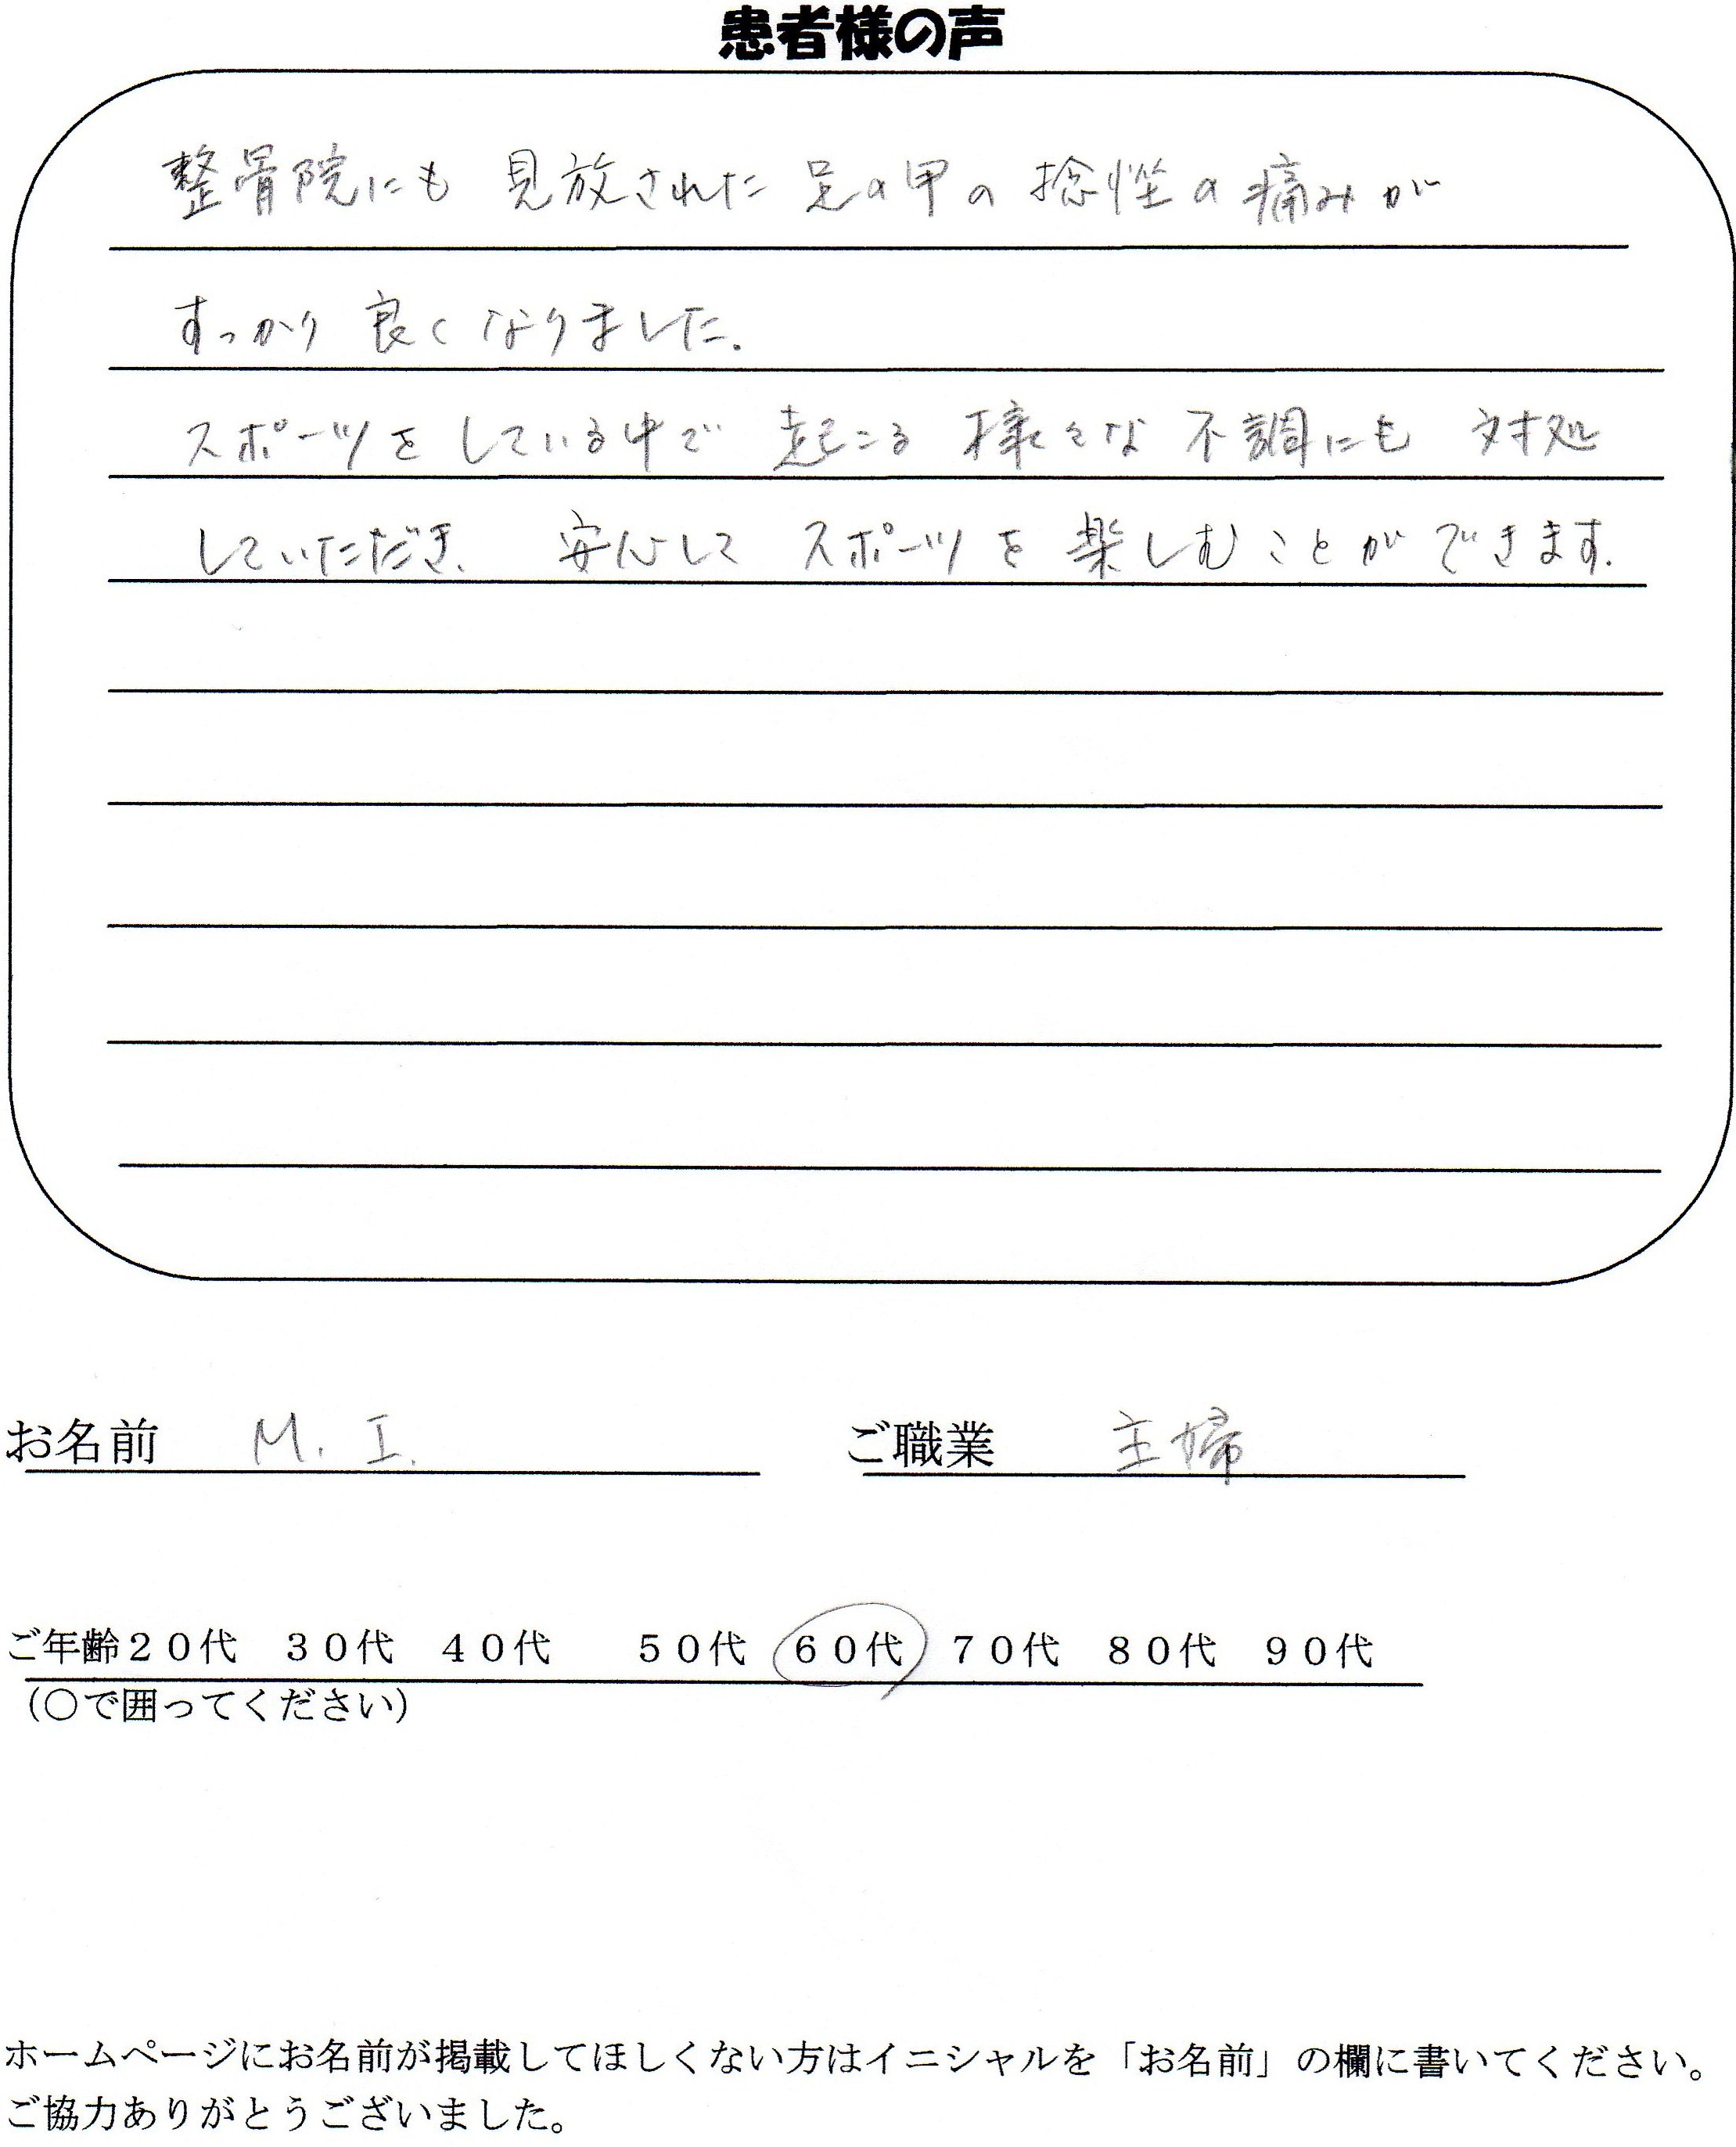 患者様の声
整骨院にも 見放された 足の甲の 捻挫の痛みが
すっかり 良くなりました.
スポーツをしている中で 起こる 様々な 不調にも 対処
していただき、 安心して スポーツを 楽しむことができます.
お名前 M. I. ご職業 主婦
ご年齢20代 30代 40代 50代 60代 70代 80代 90代
(○で囲ってください)
ホームページにお名前が掲載してほしくない方はイニシャルを「お名前」の欄に書いてください。
ご協力ありがとうございました。